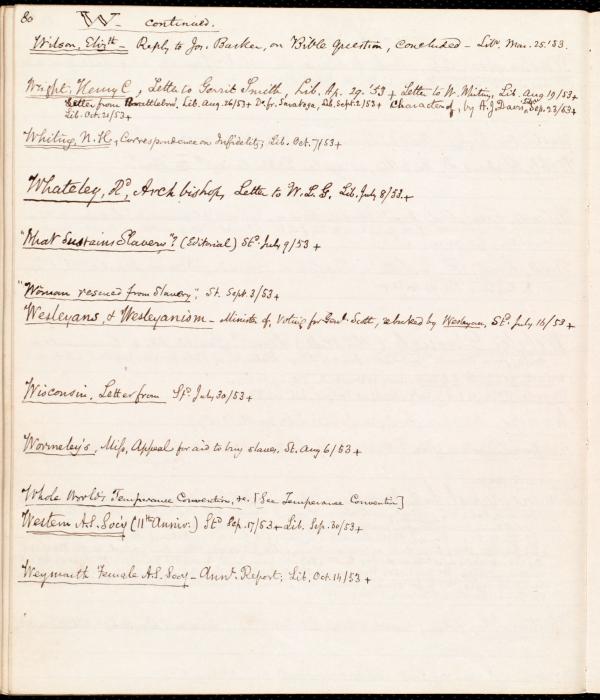 80 W. continued.
Wilson, Elizth - Reply to Jos. Barker, on Bible Question, concluded - Libr. Mar. 25. '53.
Wright, Henry C, Letter to Gerrit Smith, Lib. Ap. 29. '53 + Letter to N. Whiting, Lib. Aug 19/53 +
Letter from Brattleboro, Lib. Aug. 26/53 + Do. fr. Saratoga, Lib. Sept. 2/53 + Character of, by A. J. Davis, Sep. 23/53 +
Lib. Oct. 21/53 +
Whiting, N. H., Correspondence on Infidelity; Lib. Oct. 7/53 +
Whateley, Rd, Archbishop, Letter to W. L. G. Lib. July 8/53. +
"What Sustains Slavery"? (Editorial) Std. July 9/53 +
"Woman rescued from Slavery". St. Sept. 3/53 +
Wesleyans, & Wesleyanism - Minister of, Voting for Genl. Scott, rebuked by Wesleyan, Std. July 16/53 +
Wisconsin, Letter from Std. July 30/53 +
Wormeley's, Miss, Appeal for aid to buy slaves. St. Aug 6/53 +
Whole World's Temperance Convention, &c. [See Temperance Convention]
Western A. S. Soc'y (11th Anniv.) Std Sep. 17/53 + Lib. Sep. 30/53 +
Weymouth Female A. S. Socy - Annl. Report; Lib. Oct. 14/53 +